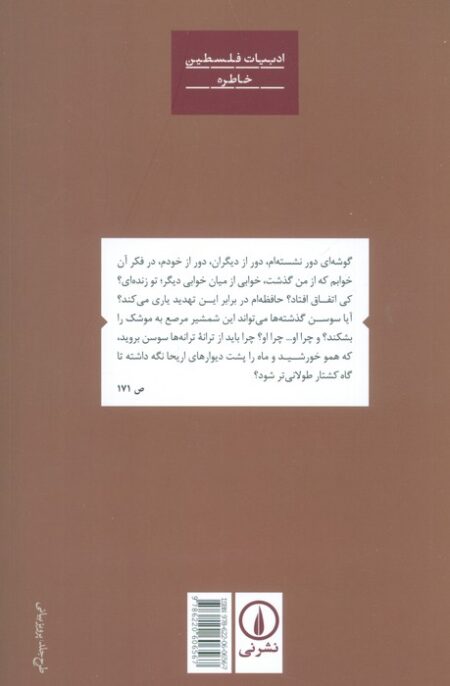 ادبیات فلسطین
خاطره
گوشه‌ای دور نشسته‌ام، دور از دیگران، دور از خودم، در فکر آن
خوابم که از من گذشت، خوابی از میان خوابی دیگر؛ تو زنده‌ای؟
کی اتفاق افتاد؟ حافظه‌ام در برابر این تهدید یاری می‌کند؟
آیا سوسن گذشته‌ها می‌تواند این شمشیر مرصع به موشک را
بشکند؟ و چرا او... چرا او؟ چرا باید از ترانهٔ ترانه‌ها سوسن بروید،
که همو خورشید و ماه را پشت دیوارهای اریحا نگه داشته تا
گاه کشتار طولانی‌تر شود؟
ص ۱۷۱
طرح جلد: پرویز بیانی
ISBN 978-622-06-0656-7
9786220606567
نشرنی